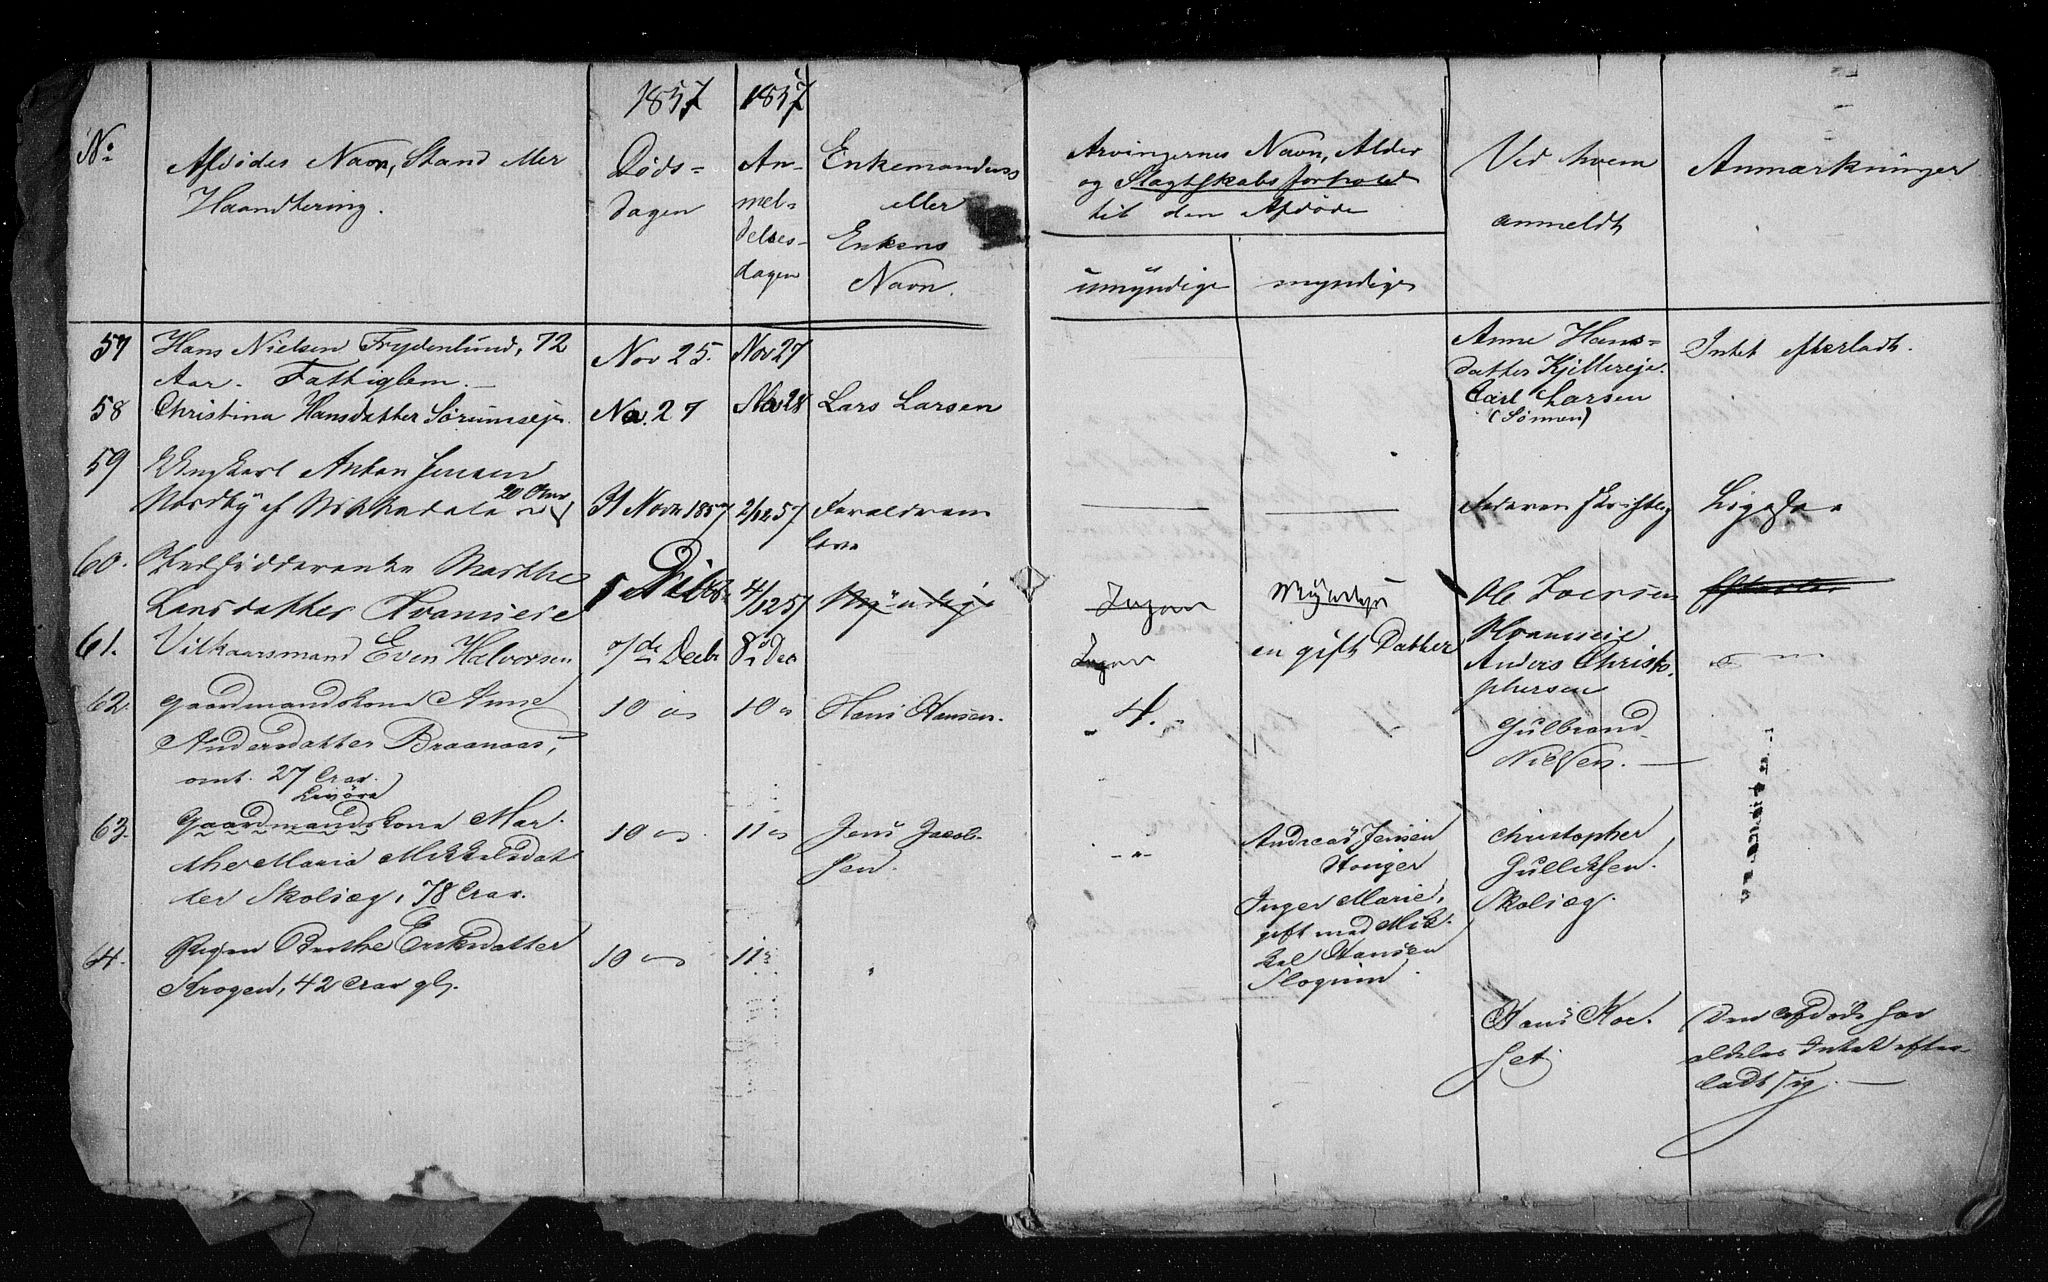 1857 1857
No
Afdødes Navn, Stand eller
Haandtering.
Døds-
dagen
An-
mel-
delses-
dagen
Enkemandens
eller
Enkens
Navn.
Arvingernes Navn, Alder
og Slagtskabsforhold
til den Afdøde
umyndige
myndige
Ved hvem
anmeldt
Anmærkninger
57 Hans Nielsen Frydenlund, 72
Aar. Fattiglem.
Nov 25.
Nov 27
Anne Hans-
datter Kjillereje.
Intet efterladt.
58 Christina Hansdatter Sørumseje
Nov. 27
Nov 28
Lars Larsen
Carl Larsen
(Sønnen)
59 Ungkarl Anton Jensen
Nordby af
20 Aar
31 Novbr 1857
2/12 57
Foræld
60. Marthe
Larsdatter Kvamseie
1 Decbr
4/12 57
Myndige
Ingen
Myndige
Ole Iversen
Kvamseie
61. Vilkaarsmand Even Halvorsen
7de Decbr
8de Dec
Ingen
en gift Datter
Anders Christo-
phersen
62. Gaardmandskone Anne
Andersdatter Braanaas,
omt. 27 Aar.
10
10
Hans Hansen.
4.
Gulbrand
Nielsen.
63. Gaardmandskone Mar-
the Maria Mikkelsdat
ter Skolseg, 78 Aar.
10
11
Jens Jacob-
sen.
Andreas Jensen
Stonger
Inger Marie,
gift med Mik-
kel Hansen
Slognum
Christopher
Gulliksen
Skolseg.
64. Pigen Berthe Eriksdatter
Krogen, 42 Aar gl.
10
11
Hans Kol-
set
Den Afdøde har
aldeles Intet efter-
ladt sig.